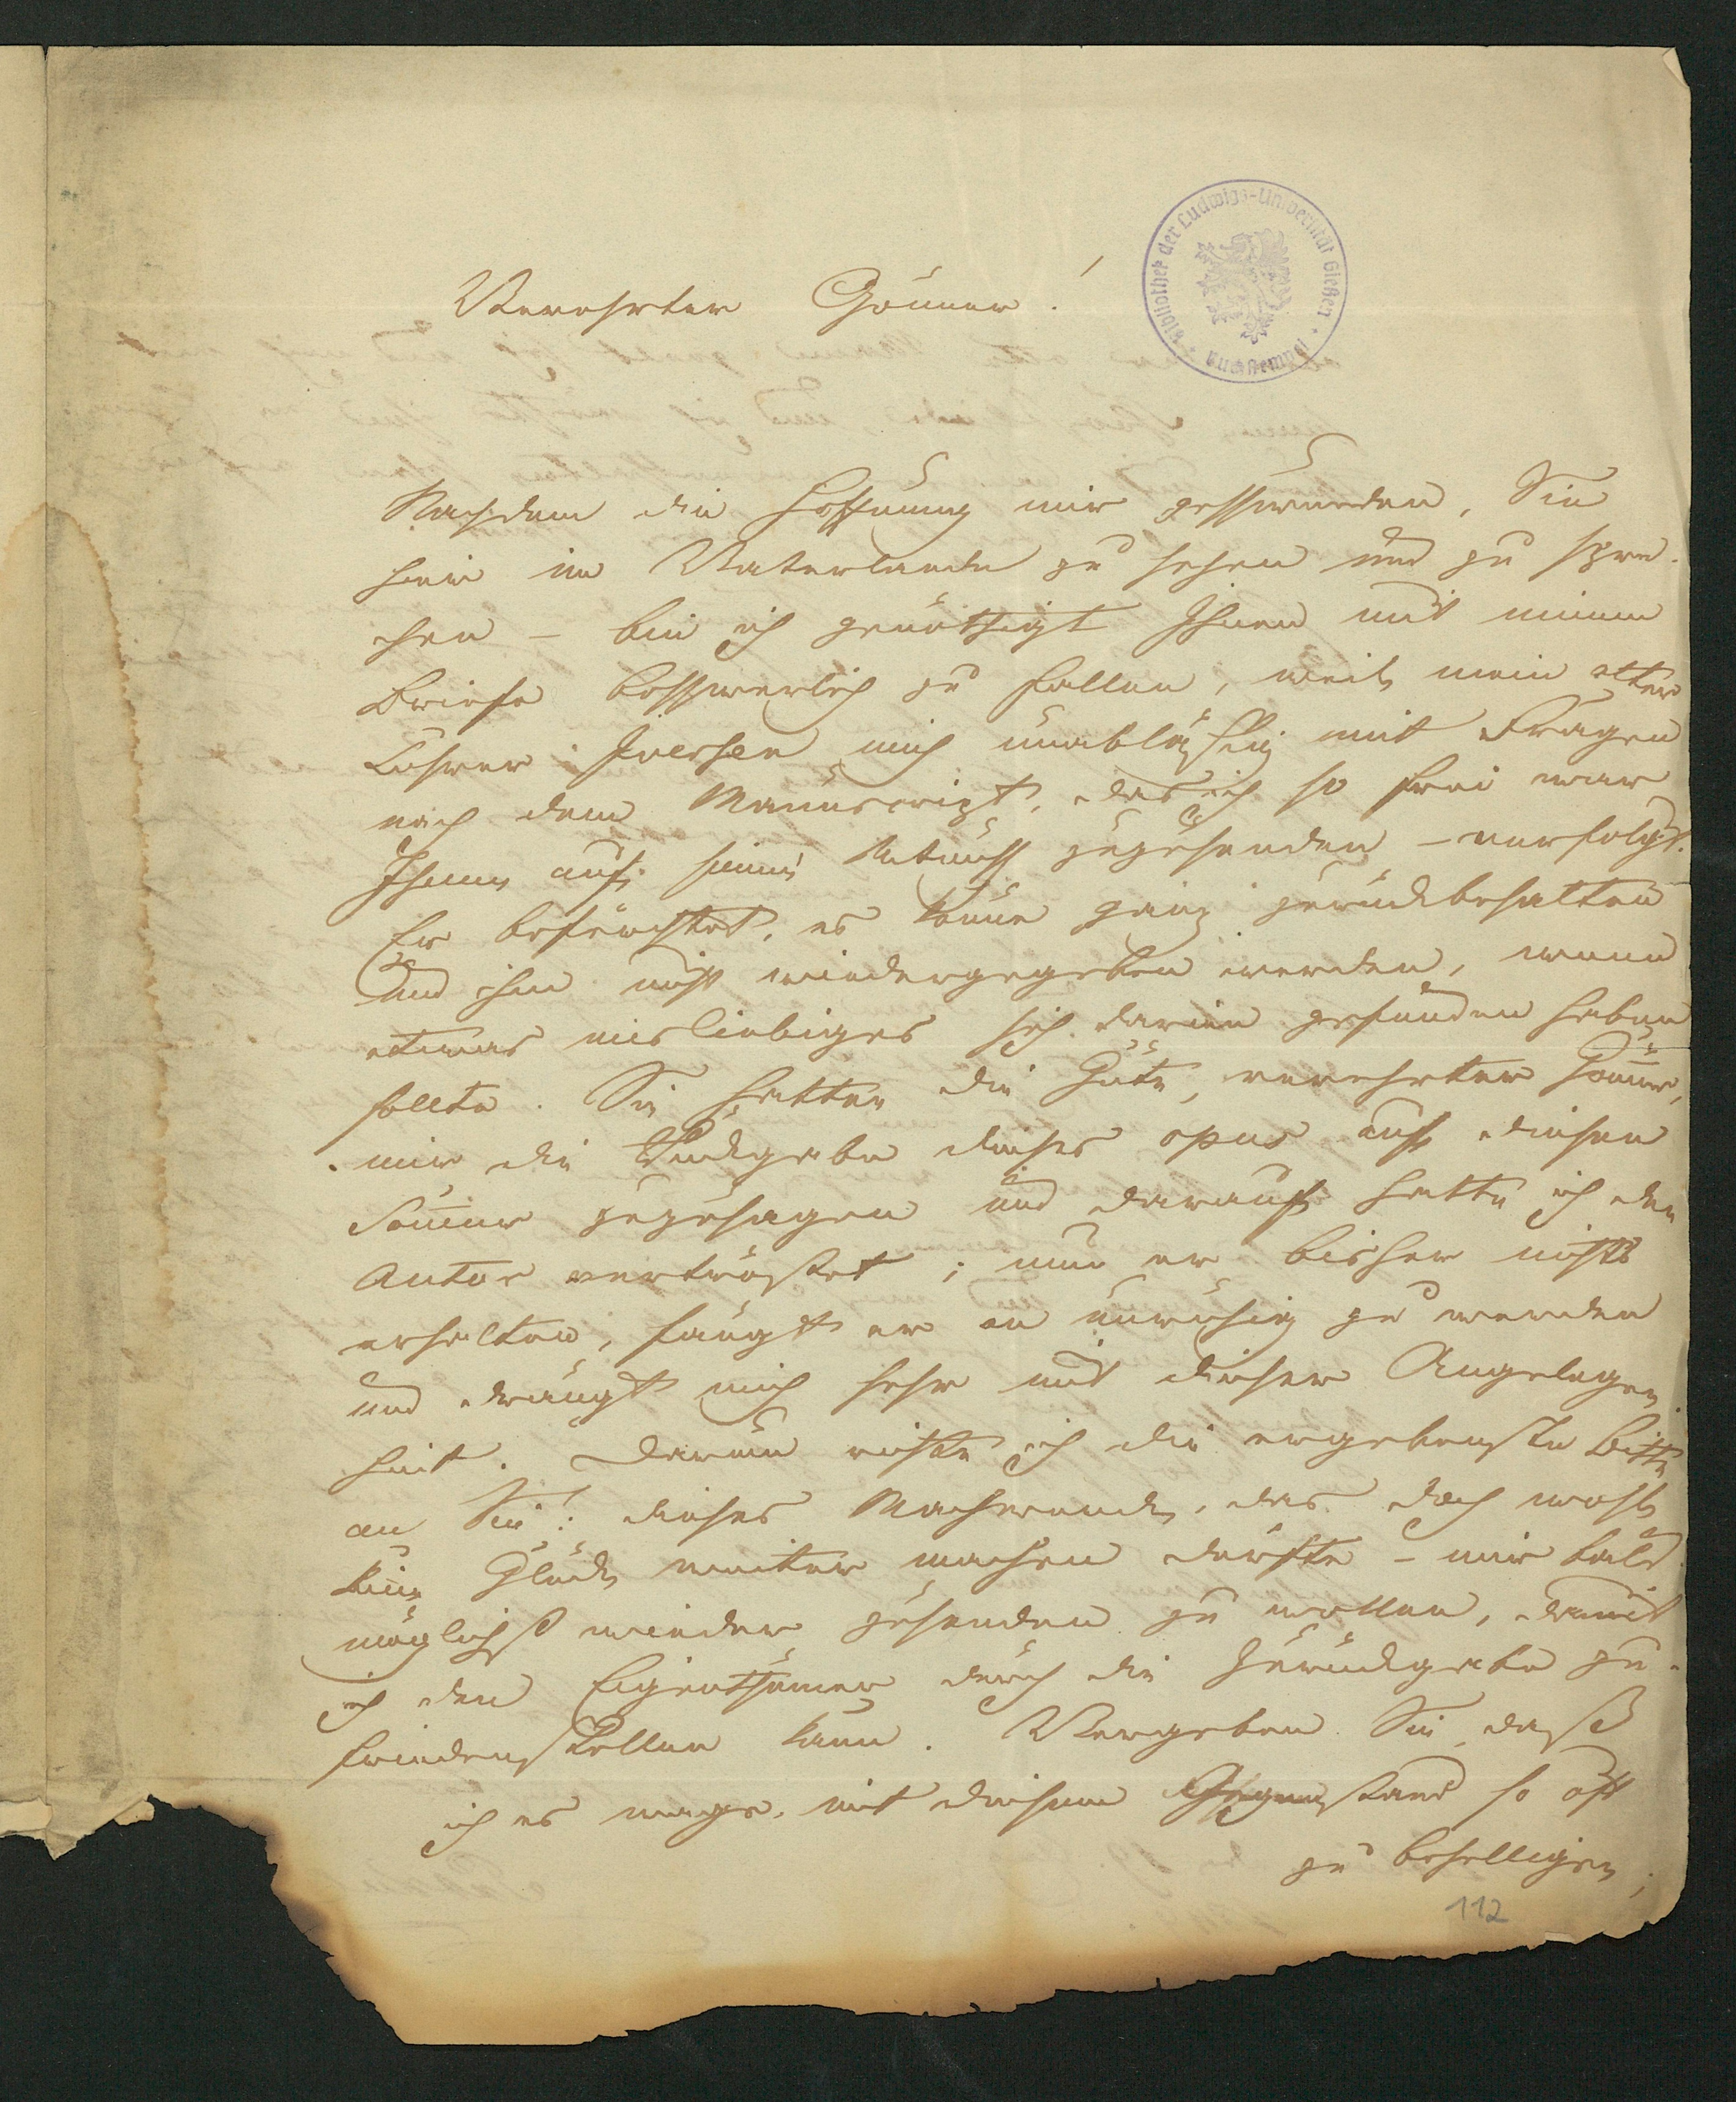 Bibliothek der Ludwigs-Universität Gießen
Verehrter Gönner!
Nachdem die Hoffnung mir geschwunden, Sie
hier im Vaterlande zu sehen und zu spre-
chen – bin ich genöthigt Ihnen mit meinem
Briefe beschwerlich zu fallen, weil mein alter
Lehrer Iversen mich unabläßig mit Fragen
nach dem Manuscript, das ich so frei war
Ihnen auf seinen Wunsch zuzusenden – verfolgt.
Er befürchtet, es könne ganz zurückbehalten
und ihm nicht wiedergegeben werden, wenn
etwas misliebiges sich darin gefunden haben
sollte. Sie hatten die Güte, verehrter Gönner,
mir die Rückgabe dieses opus auf diesen
Sommer zuzusagen und darauf hatte ich den
Autor vertröstet; nun er bisher nichts
erhalten, fängt er an unruhig zu werden
und drängt mich sehr mit dieser Angelegen-
heit. Darum richte ich die ergebenste Bitte
an Sie: dieses Machwerk, das doch wohl
kein Glück weiter machen dürfte – mir bald
möglichst wieder zusenden zu wollen, damit
ich den Eigenthümer durch die Zurückgabe zu-
friedenstellen kann. Vergeben Sie, daß
ich es wage, mit diesem Gegenstand so oft
zu behelligen;
112